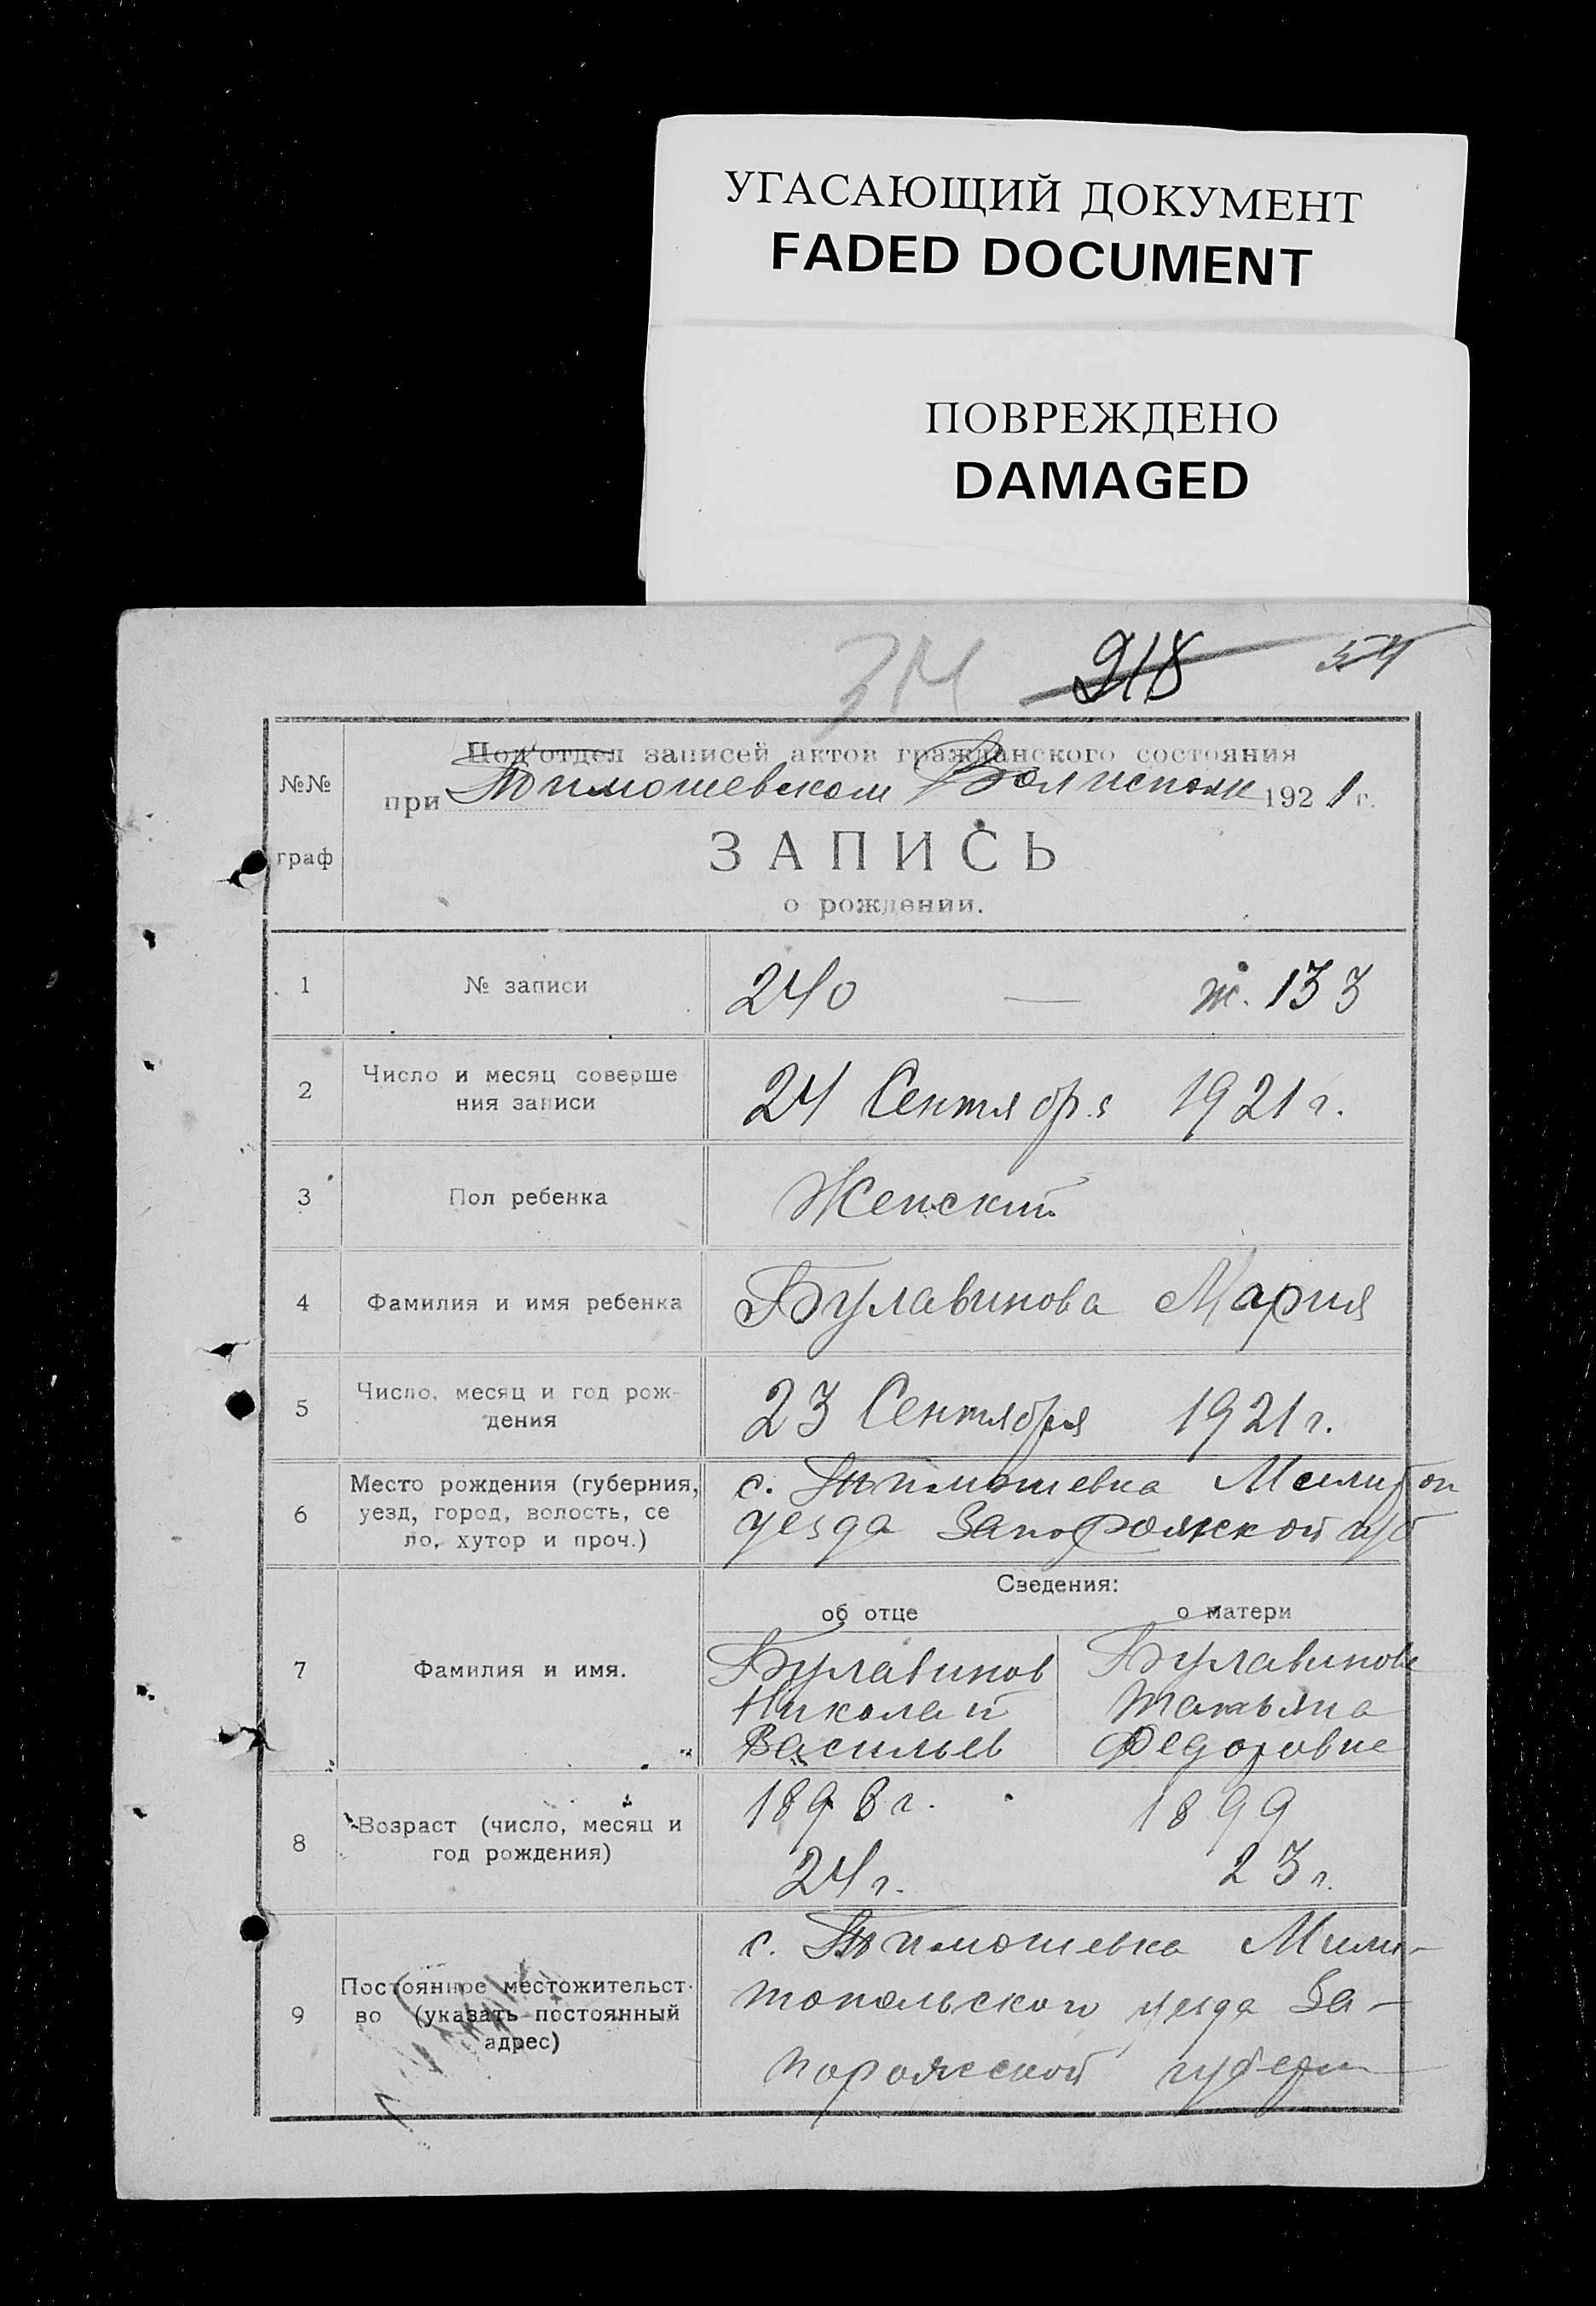 УГАСАЮЩИЙ ДОКУМЕНТ
FADED DOCUMENT
ПОВРЕЖДЕНО
DAMAGED
314 218 54
№№ граф
Под'отдел записей актов гражданского состояния
при Тимошевском Волисполк 1921 г.
ЗАПИСЬ
о рождении.
1 № записи 240 — ж. 133
2 Число и месяц соверше
ния записи 24 Сентября 1921 г.
3 Пол ребенка Женский
4 Фамилия и имя ребенка Булавинова Мария
5 Число, месяц и год рож-
дения 23 Сентября 1921 г.
6 Место рождения (губерния,
уезд, город, волость, се
ло, хутор и проч.)
с. Тимошевка Мелитоп
уезда Запорожской губ
Сведения:
об отце о матери
7 Фамилия и имя.
Булавинов Булавинова
Николай Татьяна
Васильев Федоровне
8 Возраст (число, месяц и
год рождения)
1898 г. 1899
24 г. 23 г.
9 Постоянное местожительст-
во (указать постоянный
адрес)
с. Тимошевка Мили-
топольского уезда За-
порожской губерн